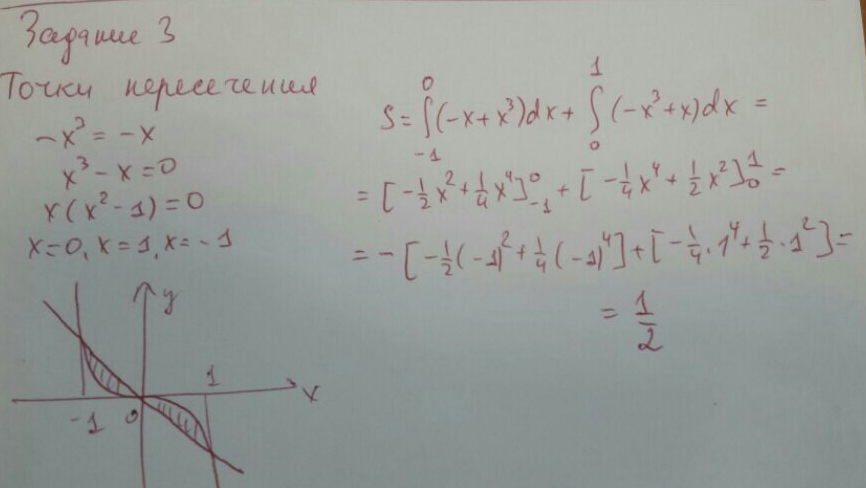 Задание 3
Точки пересечения
-x³ = -x
x³ - x = 0
x(x² - 1) = 0
x = 0, x = 1, x = -1
S = ∫₋₁⁰(-x + x³)dx + ∫₀¹(-x³ + x)dx =
= [-1/2x² + 1/4x⁴]₋₁⁰ + [-1/4x⁴ + 1/2x²]₀¹ =
= -[-1/2(-1)² + 1/4(-1)⁴] + [-1/4·1⁴ + 1/2·1²] =
= 1/2
y
1
x
-1
0